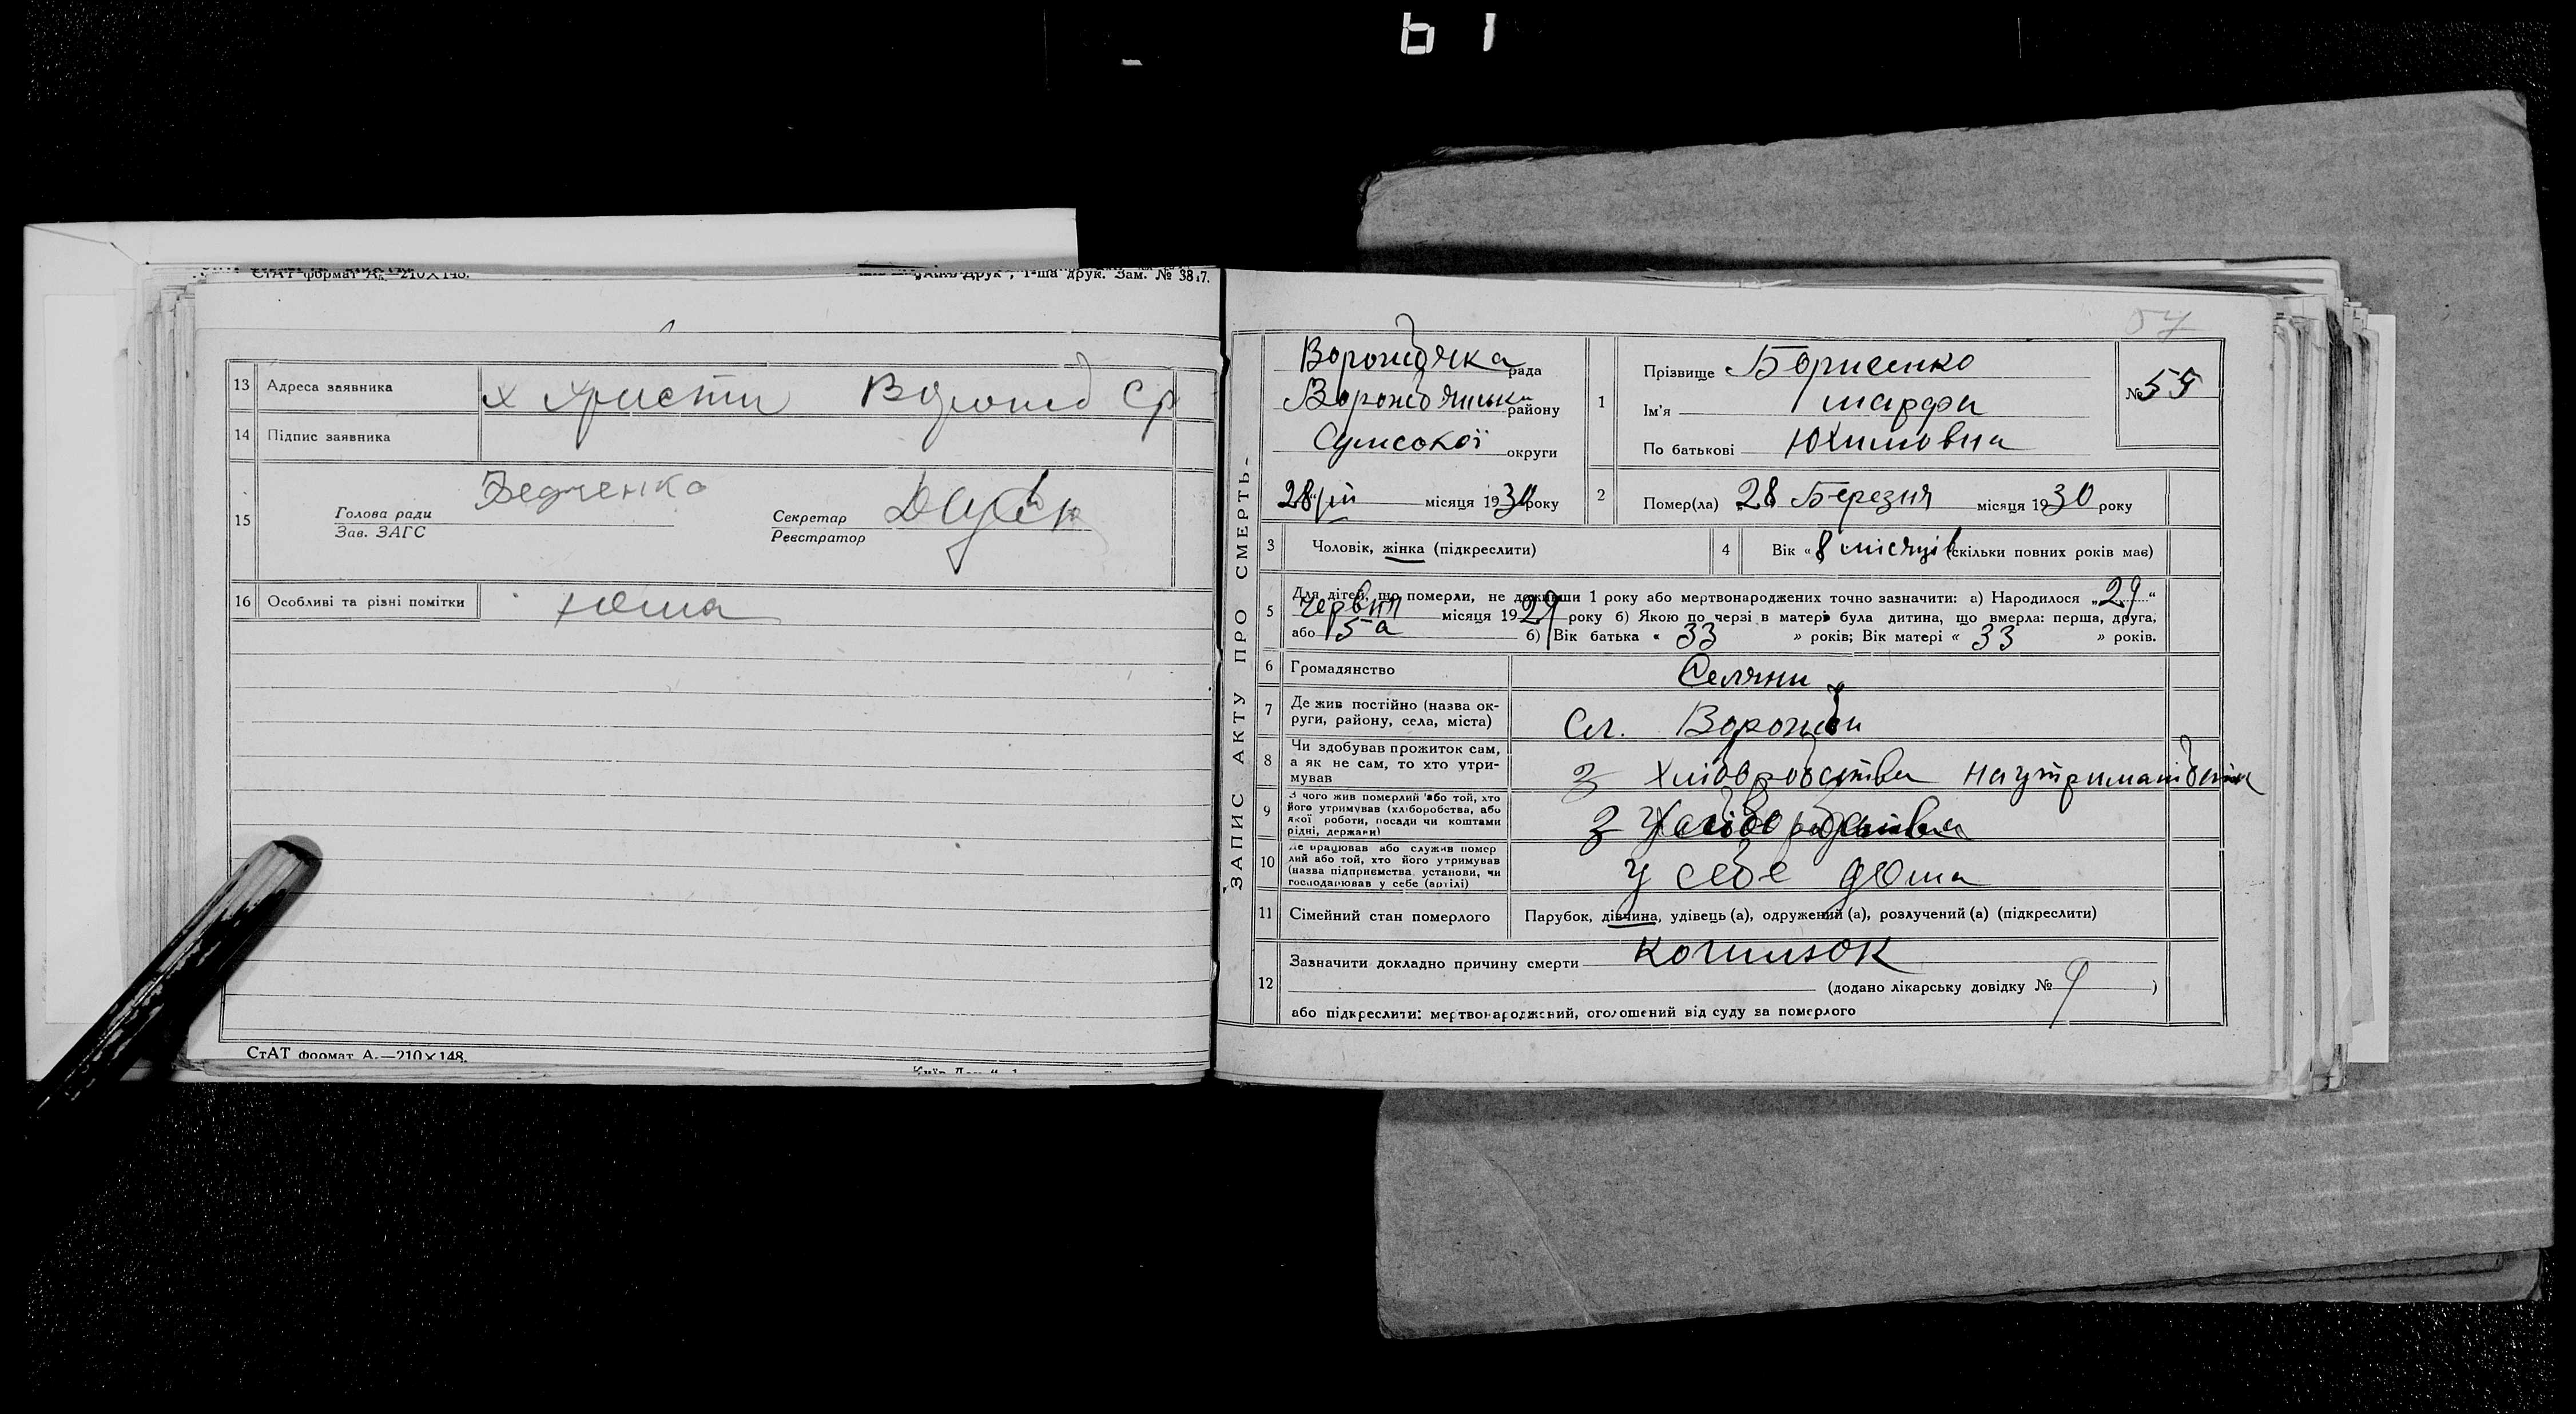 СтАТ формат А₅—210×148.
1-ша друк. Зам. № 3817.
13 Адреса заявника х Христи Ворожб Ср
14 Підпис заявника
15 Голова ради
Зав. ЗАГС
Секретар
Реєстратор
16 Особливі та різні помітки
СтАТ формат А₅—210×148.
57
ЗАПИС АКТУ ПРО СМЕРТЬ
Ворожбянка рада
Ворожбянськ району
Сумської округи
28/III місяця 1930 року
1 Прізвище Борисенко
Ім'я Марфа
По батькові Юхимовна
№ 55
2 Помер(ла) 28 Березня місяця 1930 року
3 Чоловік, жінка (підкреслити)
4 Вік « 8 місяців (скільки повних років має)
5 Для дітей, що померли, не доживши 1 року або мертвонароджених точно зазначити: а) Народилося „29“
Червня місяця 1929 року б) Якою по черзі в матері була дитина, що вмерла: перша, друга,
або 5а б) Вік батька « 33 » років; Вік матері « 33 » років.
6 Громадянство Селяни
7 Де жив постійно (назва округи, району, села, міста) Сл. Ворожби
8 Чи здобував прожиток сам, а як не сам, то хто утримував З хліборобства на утриманi
9 З чого жив померлий або той, хто його утримував (хліборобства, або якої роботи, посади чи коштами рідні, держави) З хліборобства
10 Де працював або служив померлий або той, хто його утримував (назва підприємства, установи, чи господарював у себе (артілі) У себе дома
11 Сімейний стан померлого Парубок, дівчина, удівець (а), одружений (а), розлучений (а) (підкреслити)
12 Зазначити докладно причину смерти
(додано лікарську довідку № )
або підкреслити: мертвонароджений, оголошений від суду за померлого